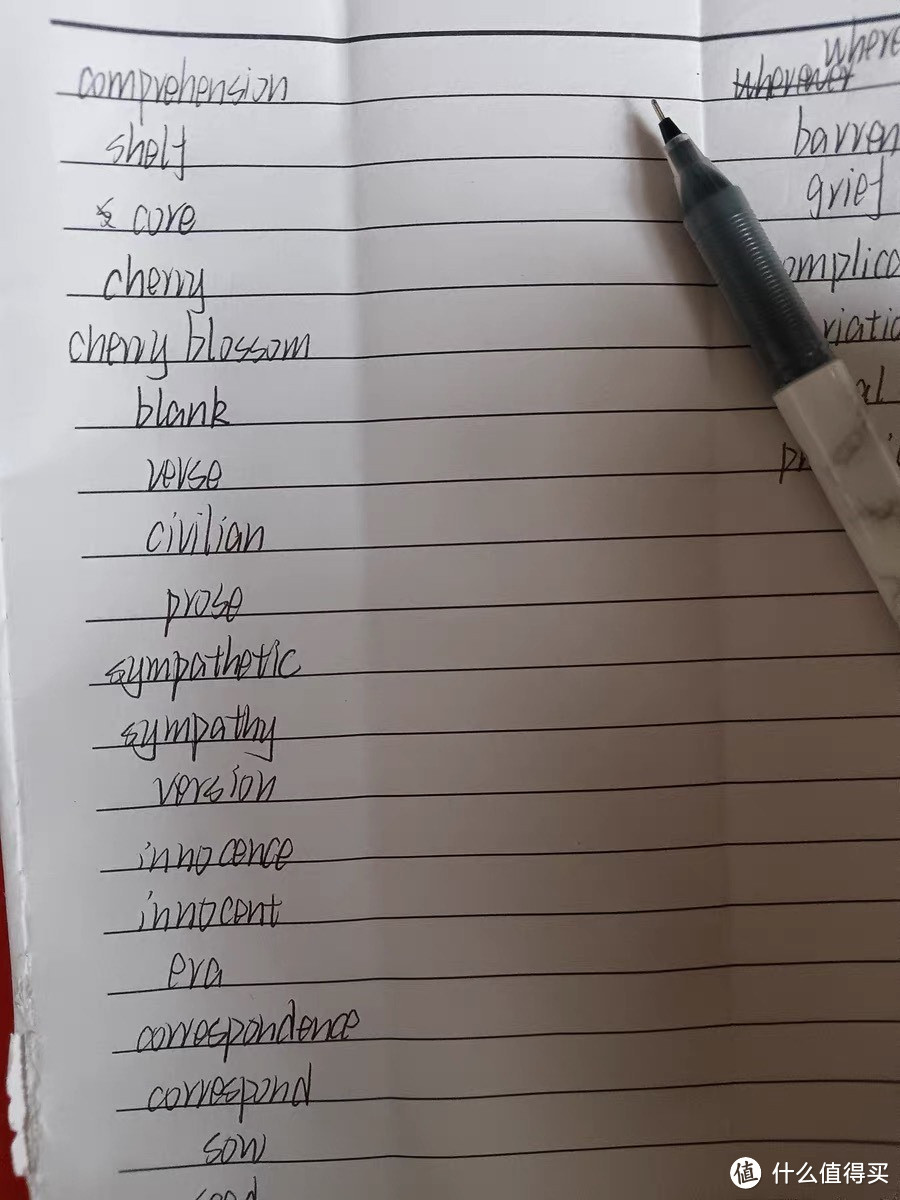 comprehension
shelf
core
cherry
cherry blossom
blank
verse
civilian
prose
sympathetic
sympathy
version
innocence
innocent
era
correspondence
correspond
sow
where
wherever
barren
grief
omplica
riatio
al
pr
值 什么值得买